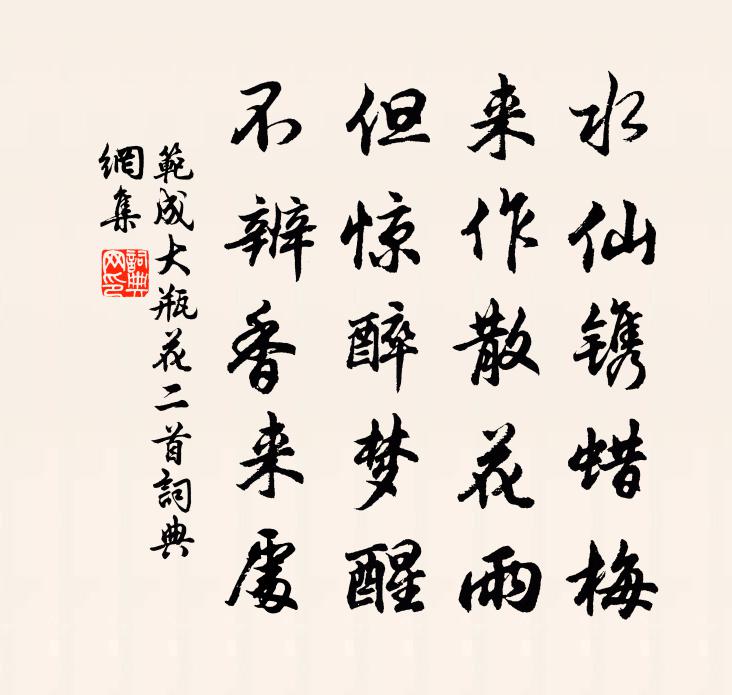 水仙镌蜡梅
来作散花雨
但惊醉梦醒
不辨香来處
範成大瓶花二首詞典
網集
詞典
网印